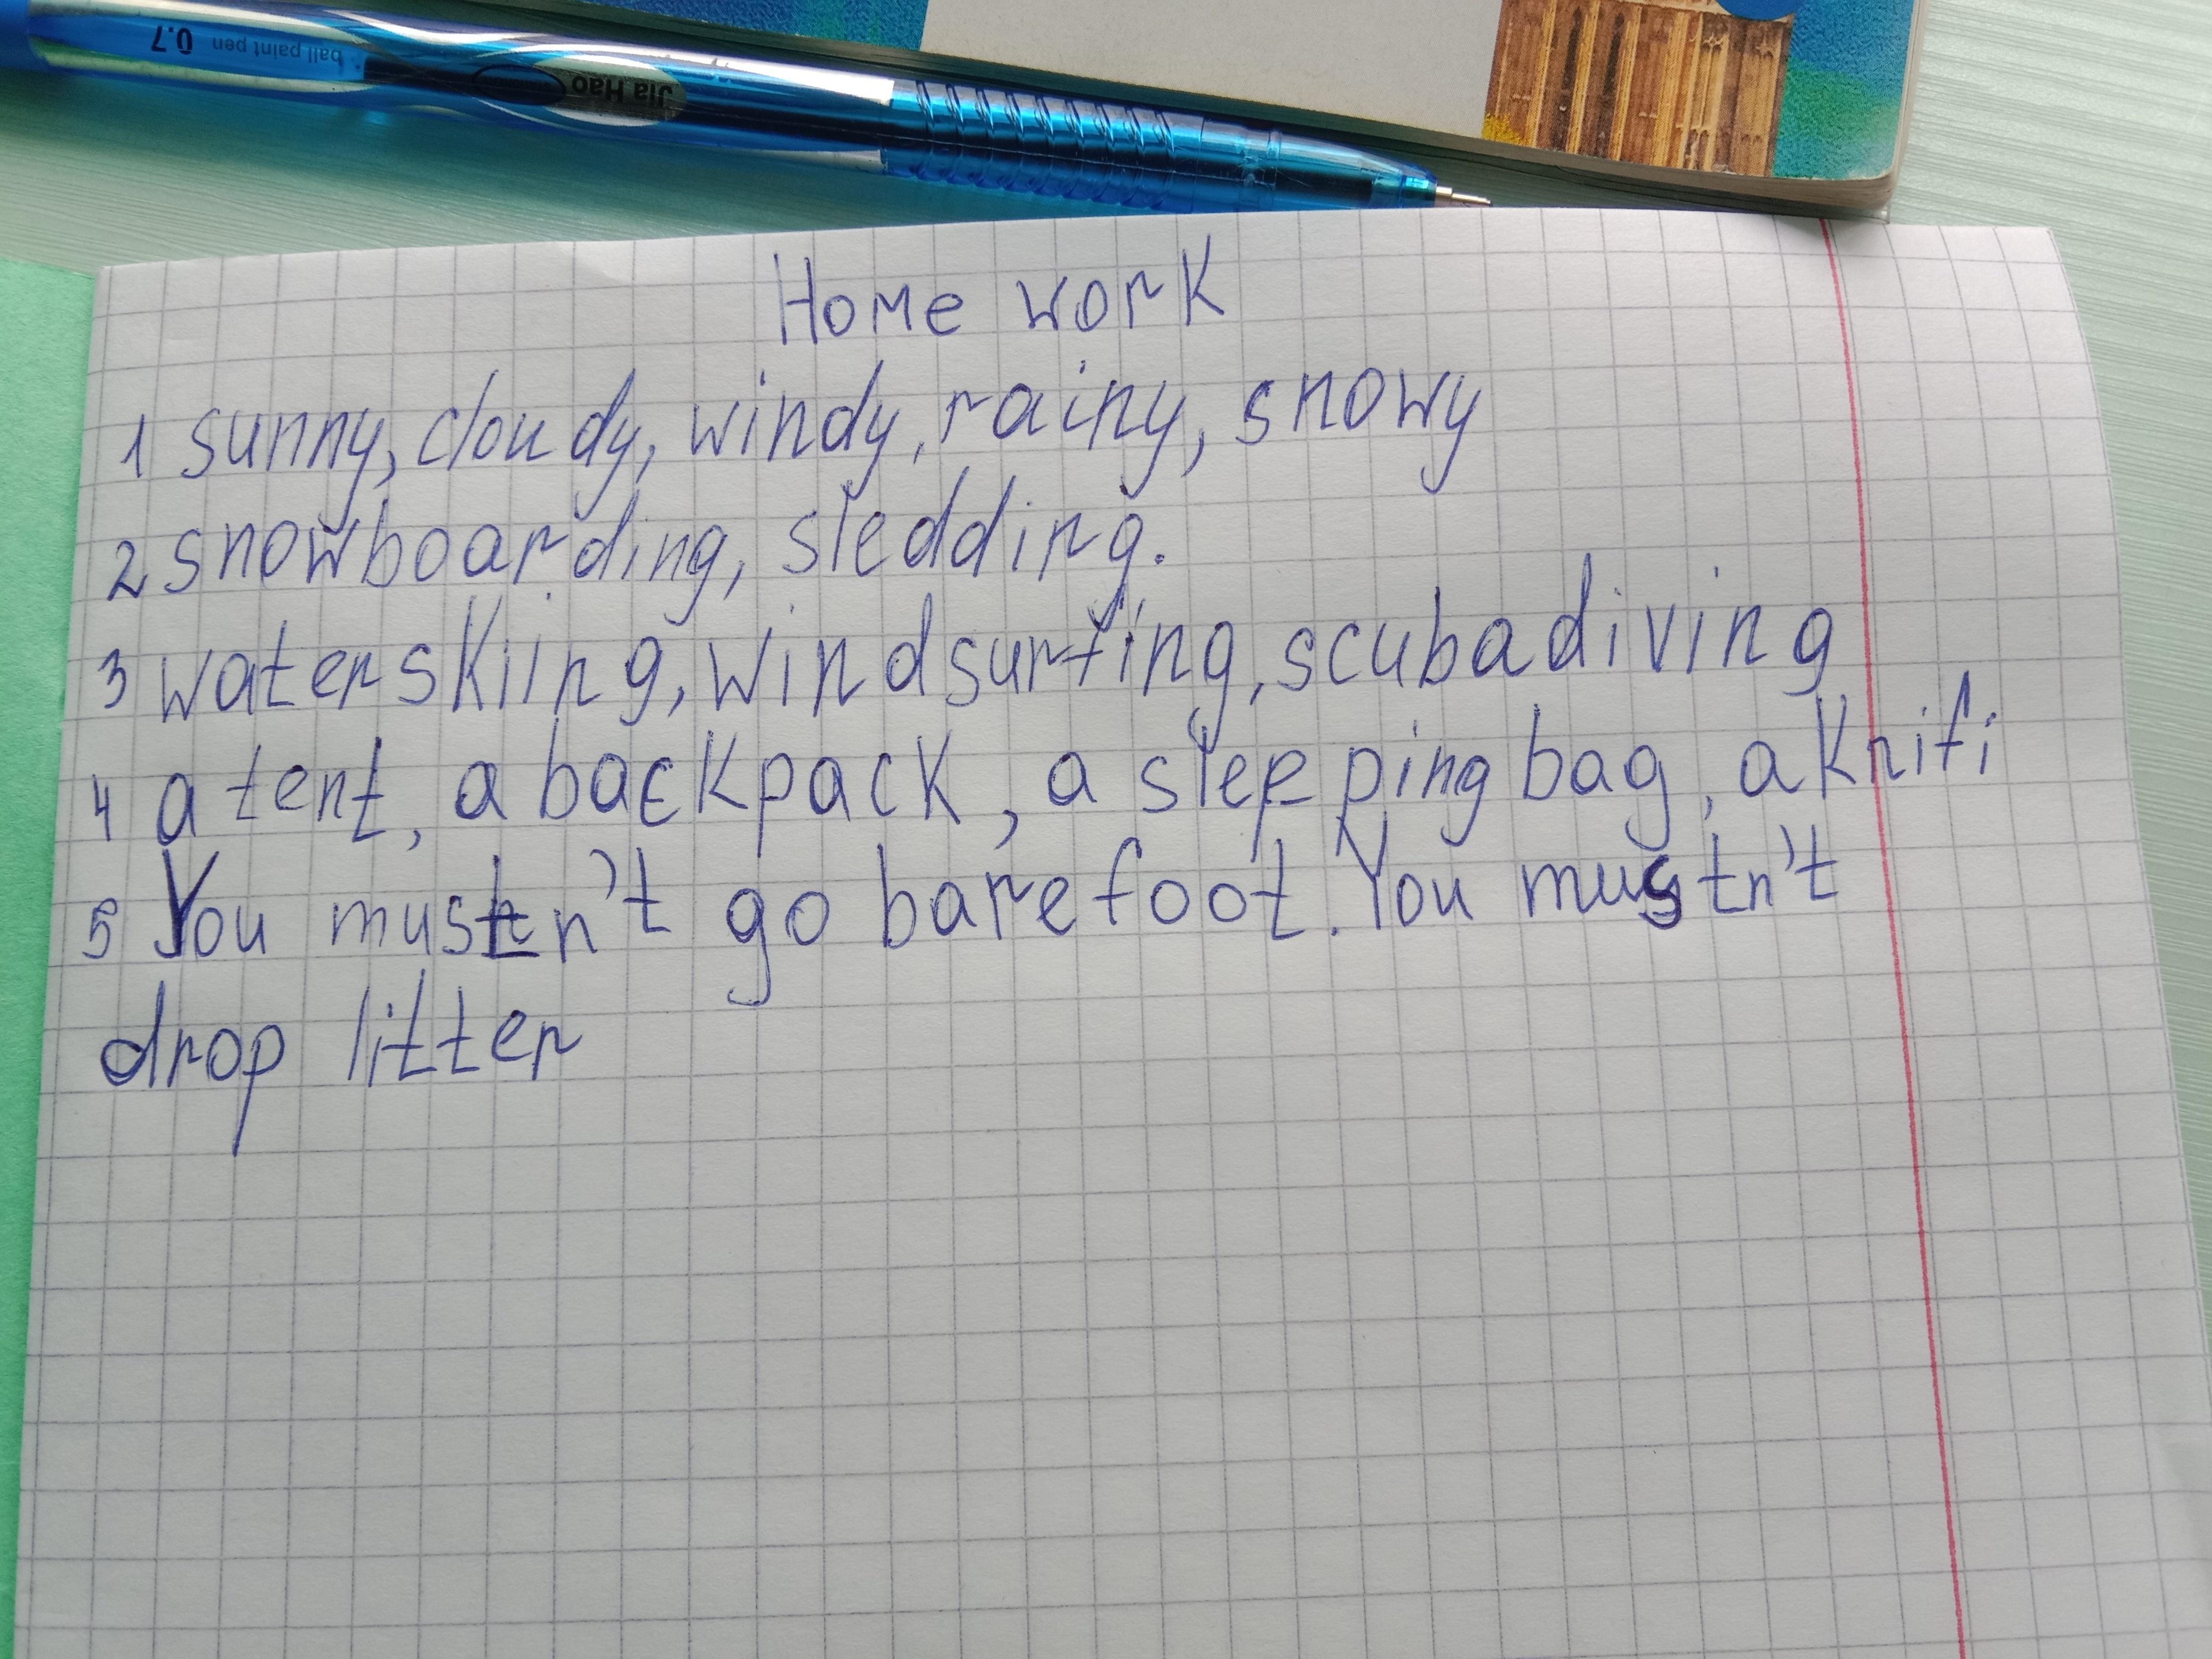 0.7 ball paint pen
Jia Hao
Home work
1 sunny, cloudy, windy, rainy, snowy
2 snowboarding, sledding.
3 waterskiing, windsurfing, scubadiving
4 a tent, a backpack, a sleeping bag, a knifi
5 You mustn't go barefoot. You mustn't
drop litter